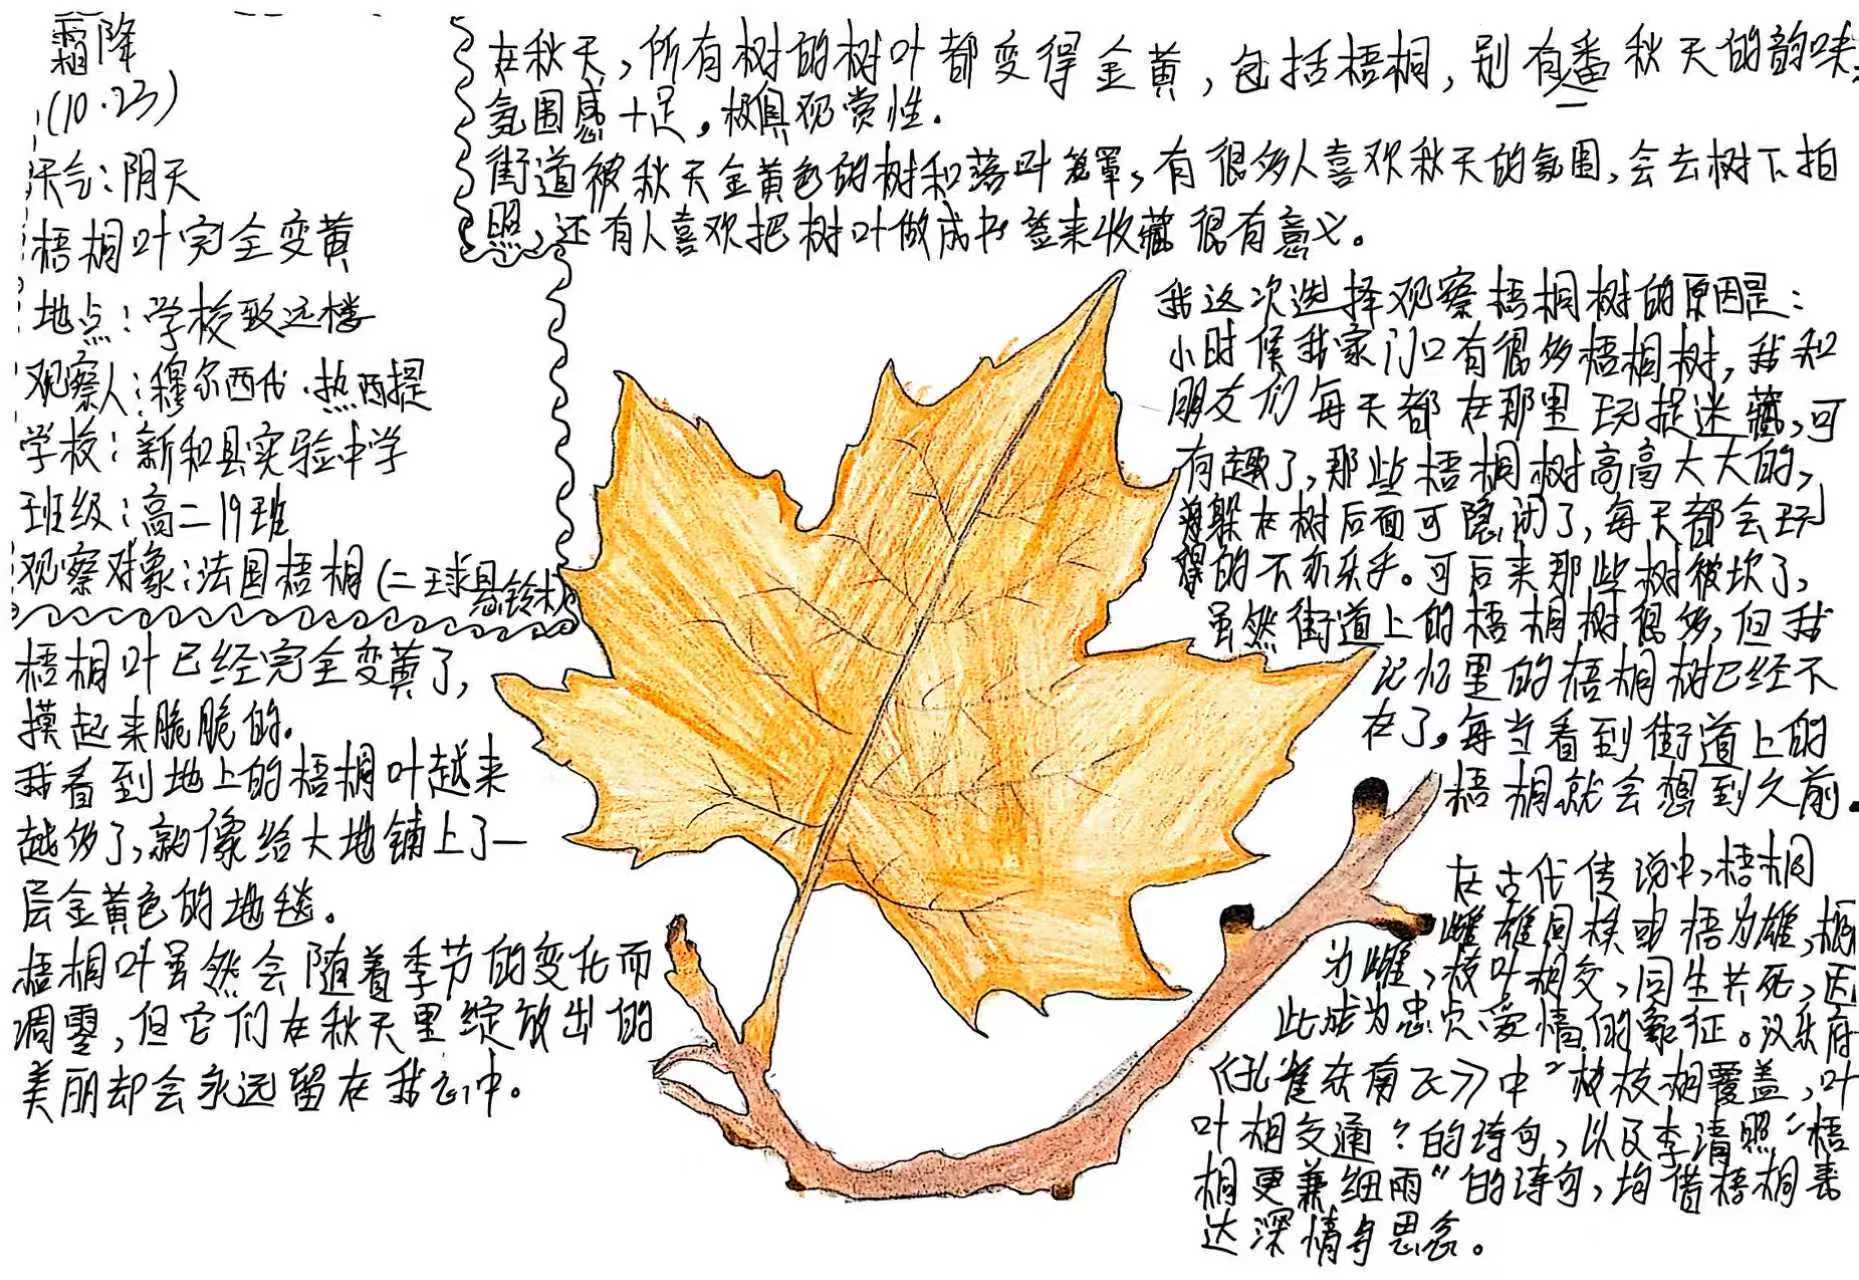 霜降
(10.23)
天气：阴天
梧桐叶完全变黄
地点：学校致远楼
观察人：穆尔西代·热西提
学校：新和县实验中学
班级：高二19班
观察对象：法国梧桐(二球悬铃木)
梧桐叶已经完全变黄了，
摸起来脆脆的。
我看到地上的梧桐叶越来
越多了，就像给大地铺上了一
层金黄色的地毯。
梧桐叶虽然会随着季节的变化而
凋零，但它们在秋天里绽放出的
美丽却会永远留在我心中。
在秋天，所有树的树叶都变得金黄，包括梧桐，别有番秋天的韵味，
氛围感十足，极具观赏性.
街道被秋天金黄色的树和落叶笼罩，有很多人喜欢秋天的氛围，会去树下拍
照，还有人喜欢把树叶做成书签来收藏很有意义。
我这次选择观察梧桐树的原因是：
小时候我家门口有很多梧桐树，我和
朋友们每天都在那里玩捉迷藏，可
有趣了，那些梧桐树高高大大的，
躲在树后面可隐闭了，每天都会玩
得的不亦乐乎。可后来那些树被坎了，
虽然街道上的梧桐树很多，但我
记忆里的梧桐树已经不
在了。每当看到街道上的
梧桐就会想到久前。
在古代传说中，梧桐
雌雄同株由梧为雄，桐
为雌，枝叶相交，同生共死，因
此成为忠贞爱情的象征。汉乐府
《孔雀东南飞》中“枝枝相覆盖，叶
叶相交通？的诗句，以及李清照“梧
桐更兼细雨”的诗句，均借梧桐表
达深情与思念。